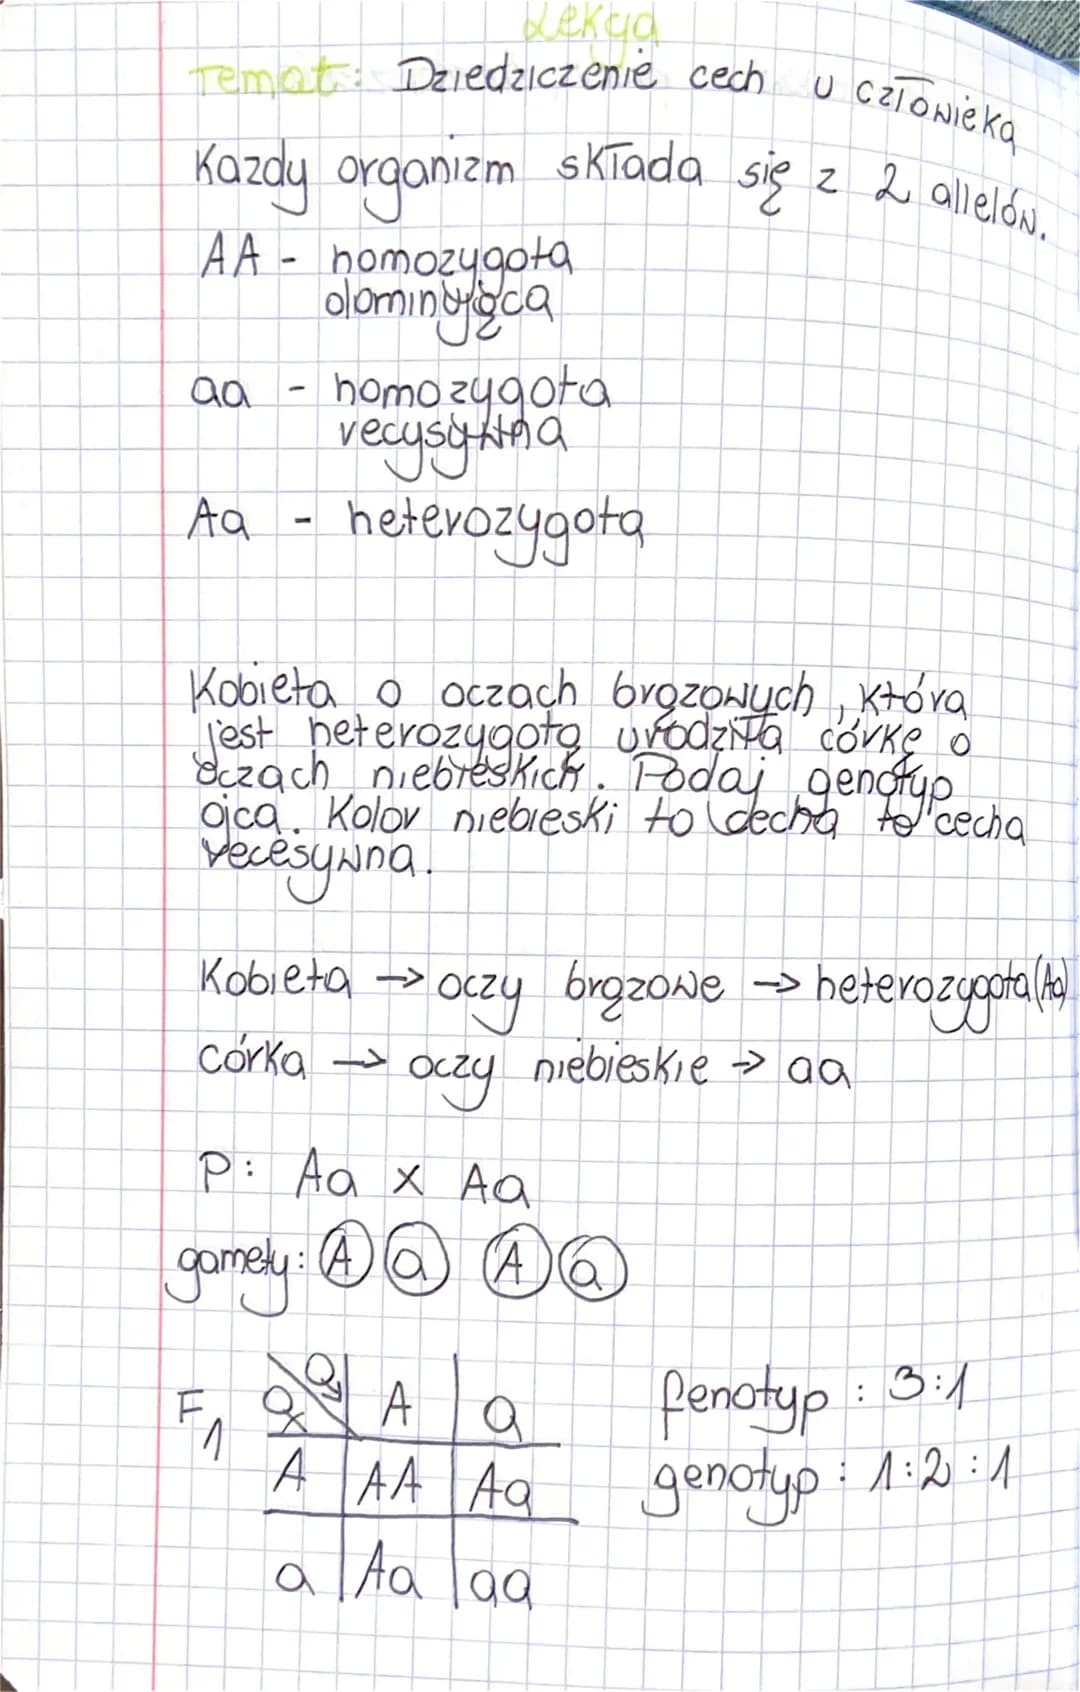 Lekcja
Temat: Dziedziczenie cech u człowieka
Każdy organizm składa się z 2 allelów.
AA - homozygota
dominująca
aa - homozygota
recysywna
Aa - heterozygota
Kobieta o oczach brązowych, która
jest heterozygotą urodziła córkę o
oczach niebieskich. Podaj genotyp
ojca. Kolor niebieski to cecha to cecha
recesywna.
Kobieta → oczy brązowe → heterozygota (Aa)
córka → oczy niebieskie → aa
P: Aa x Aa
gamety: A a A a
F1 ♀ ♂ A a
A AA Aa
a Aa aa
fenotyp : 3:1
genotyp : 1:2:1